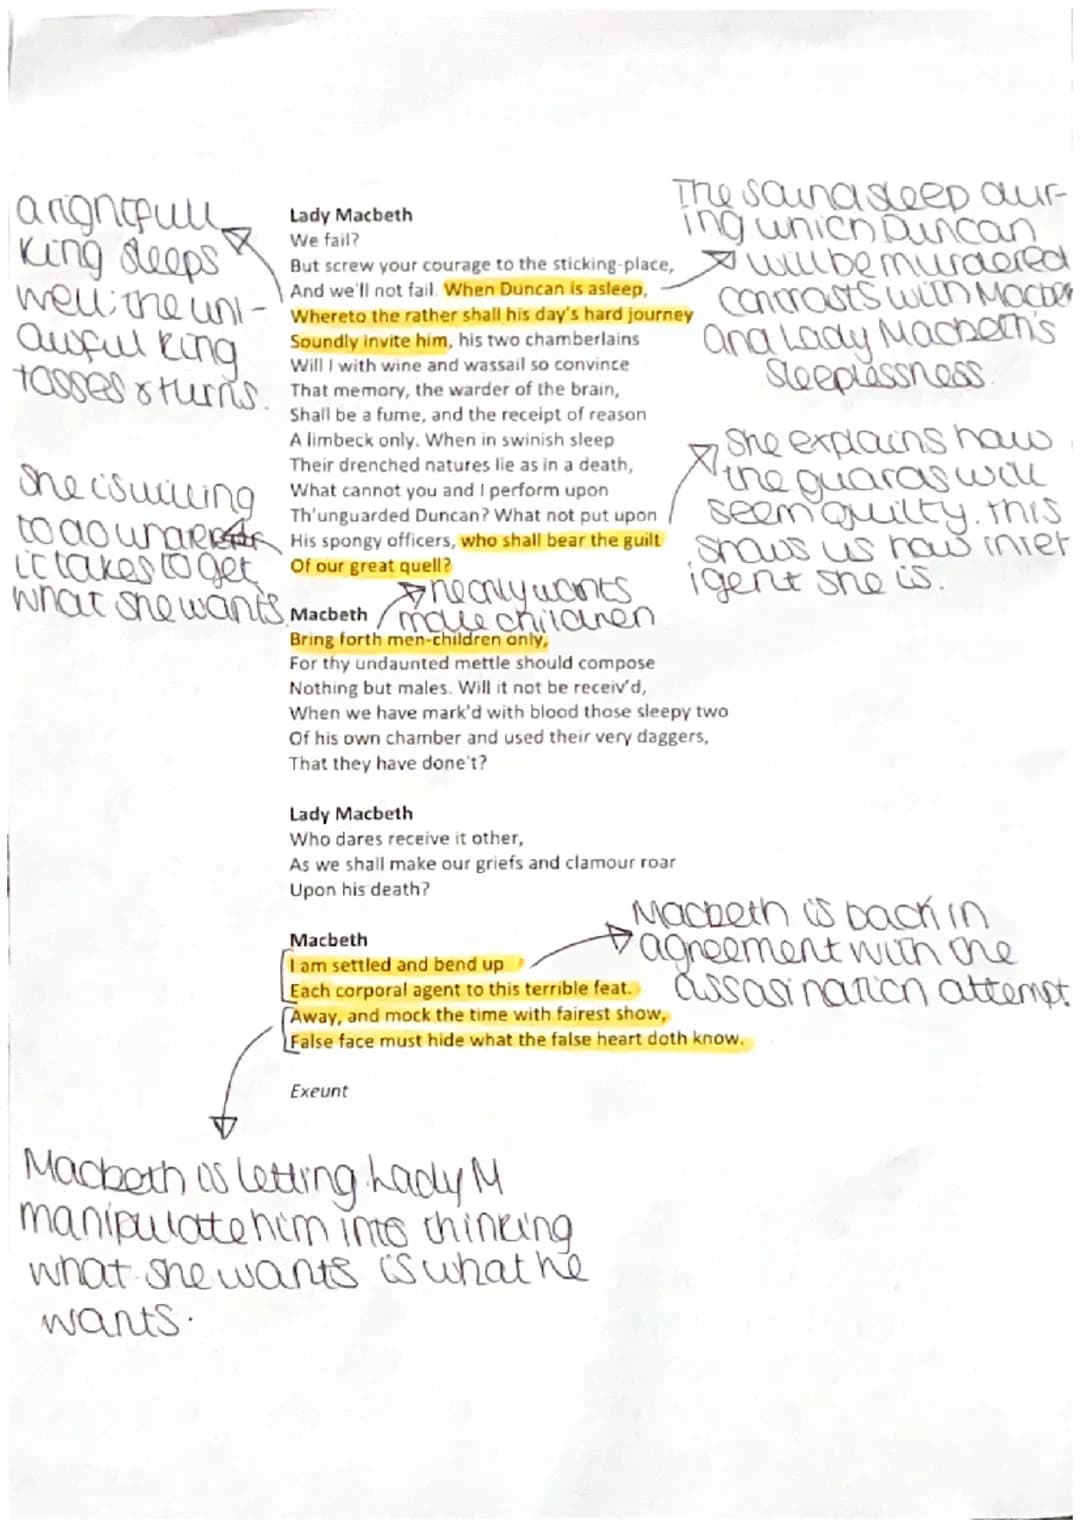 arightfull
king sleeps
well; the unl-
awful king
tosses & turns.
The sound sleep dur-
ing which Duncan
will be murdered
contrasts with Macbet
and Lady Macbeth's
sleeplessness.
Lady Macbeth
We fail?
But screw your courage to the sticking-place,
And we'll not fail. When Duncan is asleep,
Whereto the rather shall his day's hard journey
Soundly invite him, his two chamberlains
Will I with wine and wassail so convince
That memory, the warder of the brain,
Shall be a fume, and the receipt of reason
A limbeck only. When in swinish sleep
Their drenched natures lie as in a death,
What cannot you and I perform upon
Th'unguarded Duncan? What not put upon
His spongy officers, who shall bear the guilt
Of our great quell?
She explains how
the guards will
seem guilty. this
shows us how intel
igent she is.
She is willing
to do
it takes to get
what she wants
male children
Macbeth
Bring forth men-children only,
For thy undaunted mettle should compose
Nothing but males. Will it not be receiv'd,
When we have mark'd with blood those sleepy two
Of his own chamber and used their very daggers,
That they have done't?
Lady Macbeth
Who dares receive it other,
As we shall make our griefs and clamour roar
Upon his death?
Macbeth
I am settled and bend up
Each corporal agent to this terrible feat.
Away, and mock the time with fairest show,
False face must hide what the false heart doth know.
Exeunt
Macbeth is back in
agreement with the
assasination attempt
Macbeth is letting Lady M
manipulate him into thinking
what she wants is what he
wants.